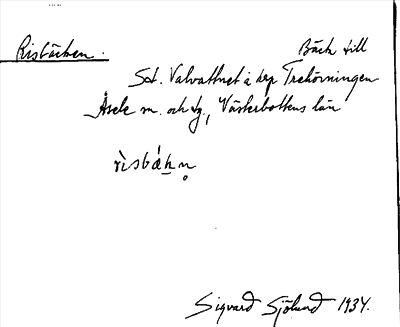 Risbäcken. Bäck till
St. Valvattnet å krp Trehörningen
Åsele sn. och tg., Västerbottens län
rìsbá̱ḵn̥
Sigvard Sjölund 1934.